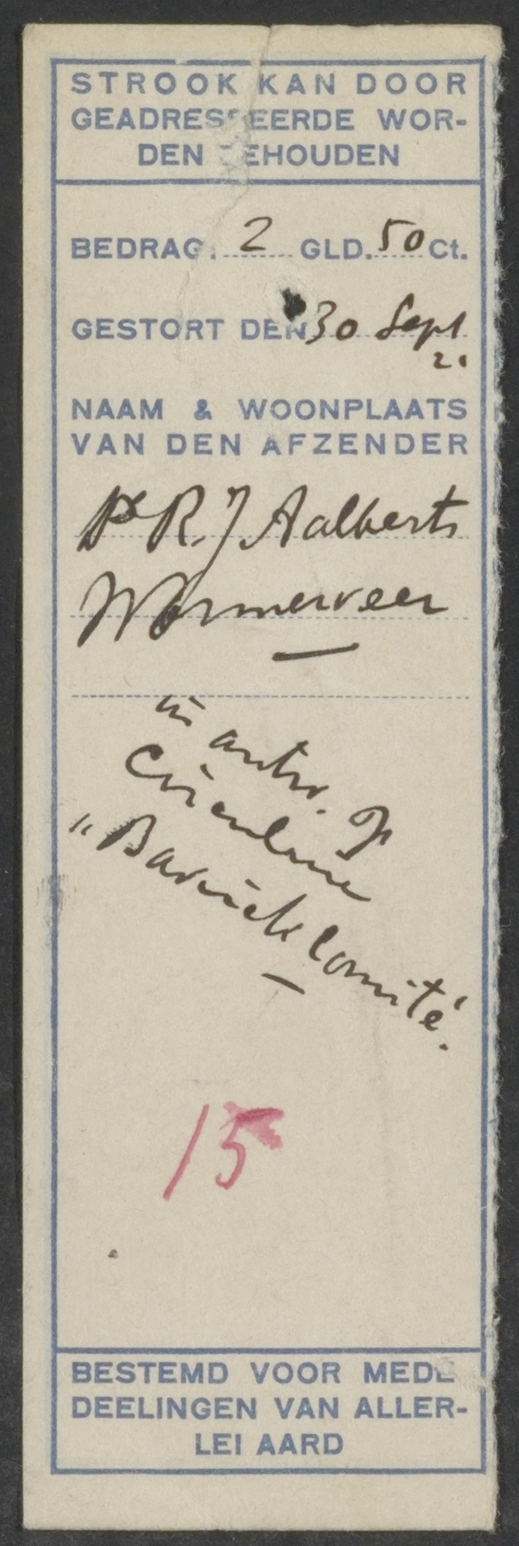 STROOK KAN DOOR
GEADRESSEERDE WOR-
DEN BEHOUDEN
BEDRAG: 2 GLD. 50 Ct.
GESTORT DEN 30 Sept
21
NAAM & WOONPLAATS
VAN DEN AFZENDER
Dr R. J Aalberts
Wormerveer
in antw. op
Circulaire
"Bavinck comité.
15
BESTEMD VOOR MEDE
DEELINGEN VAN ALLER-
LEI AARD